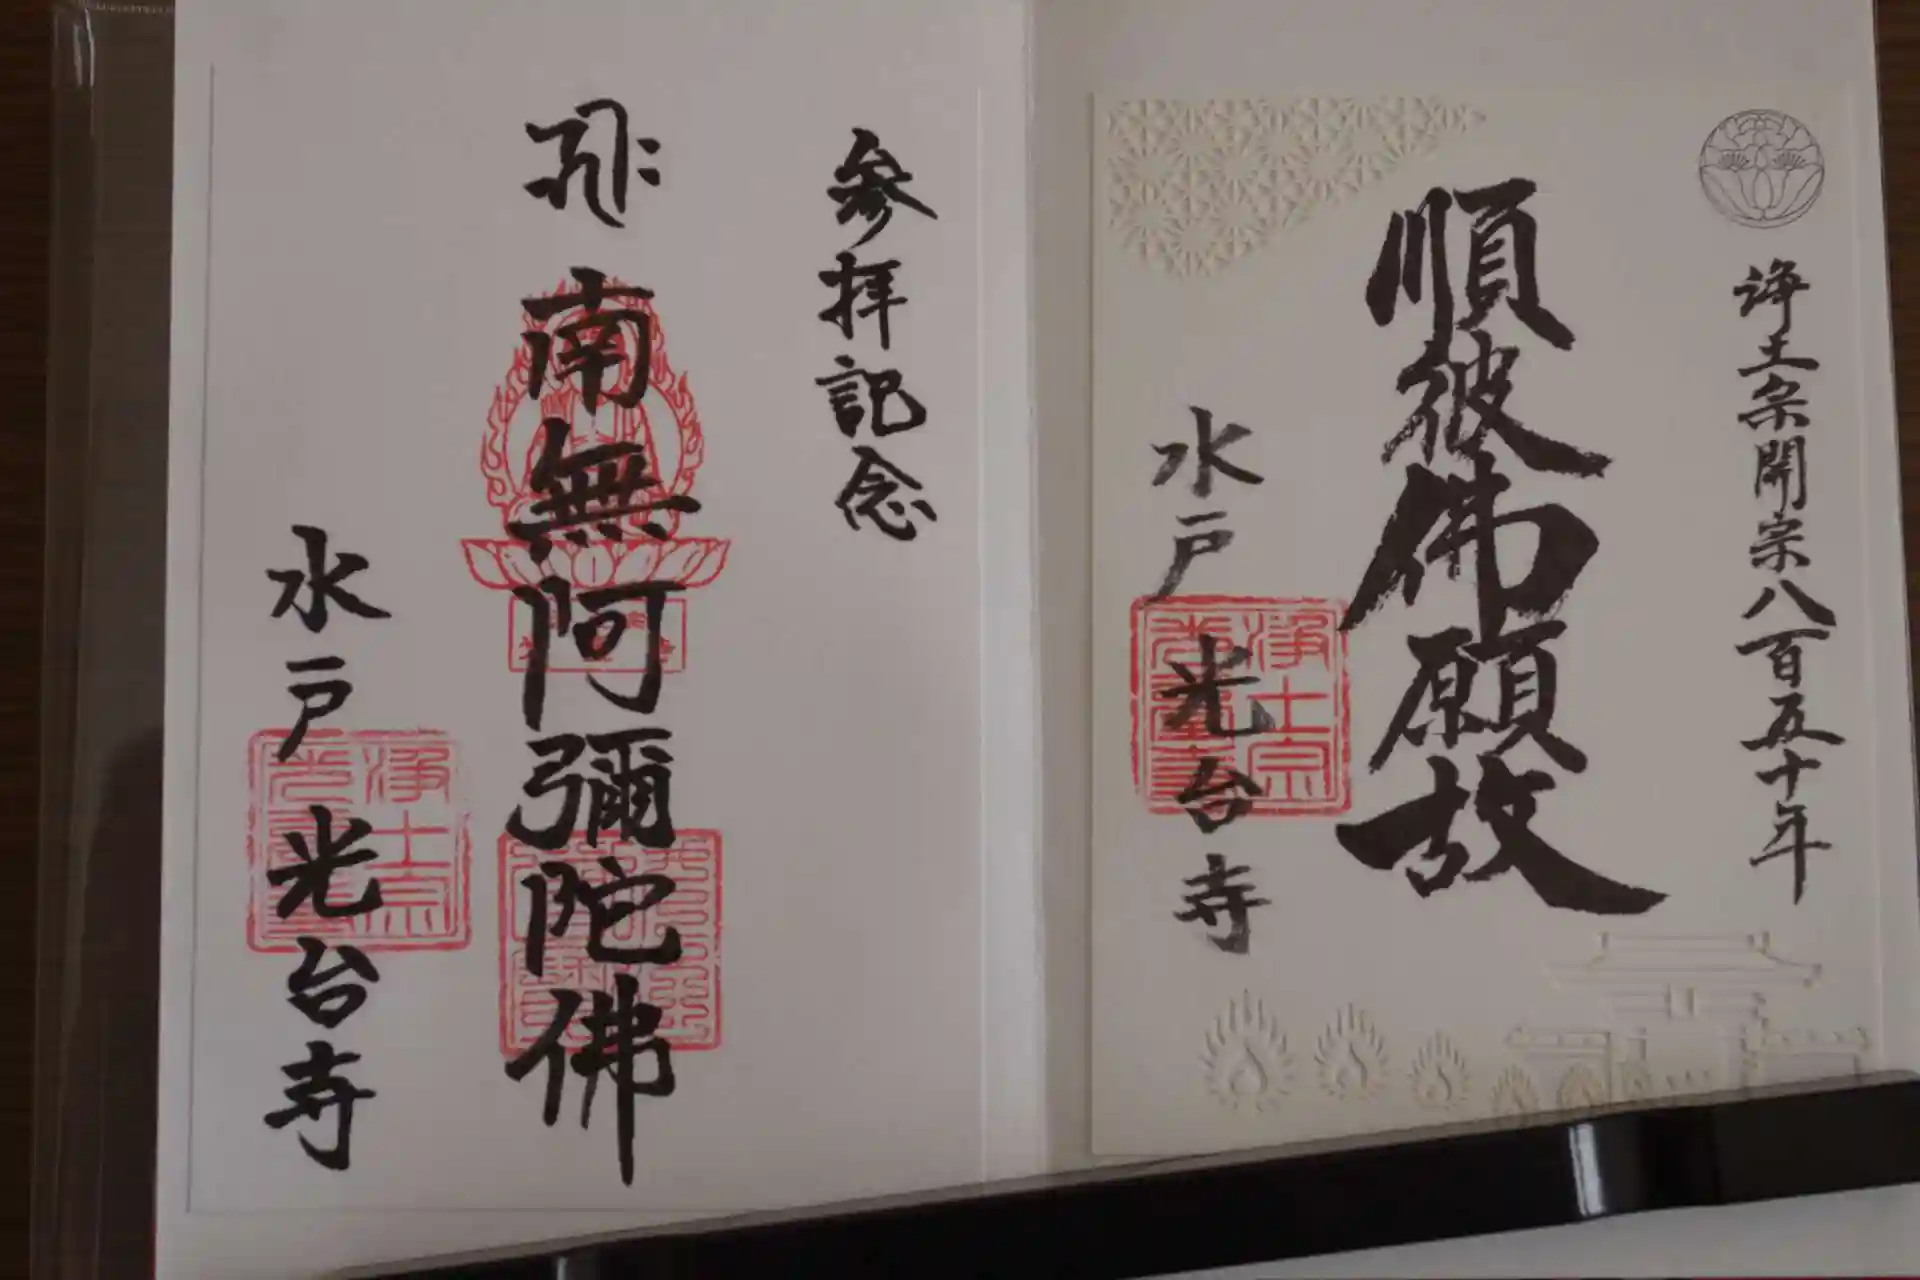 浄土宗開宗八百五十年
順彼佛願故
水戸 光台寺
浄土宗
光臺寺
参拝記念
南無阿彌陀佛
水戸 光台寺
浄土宗
光臺寺